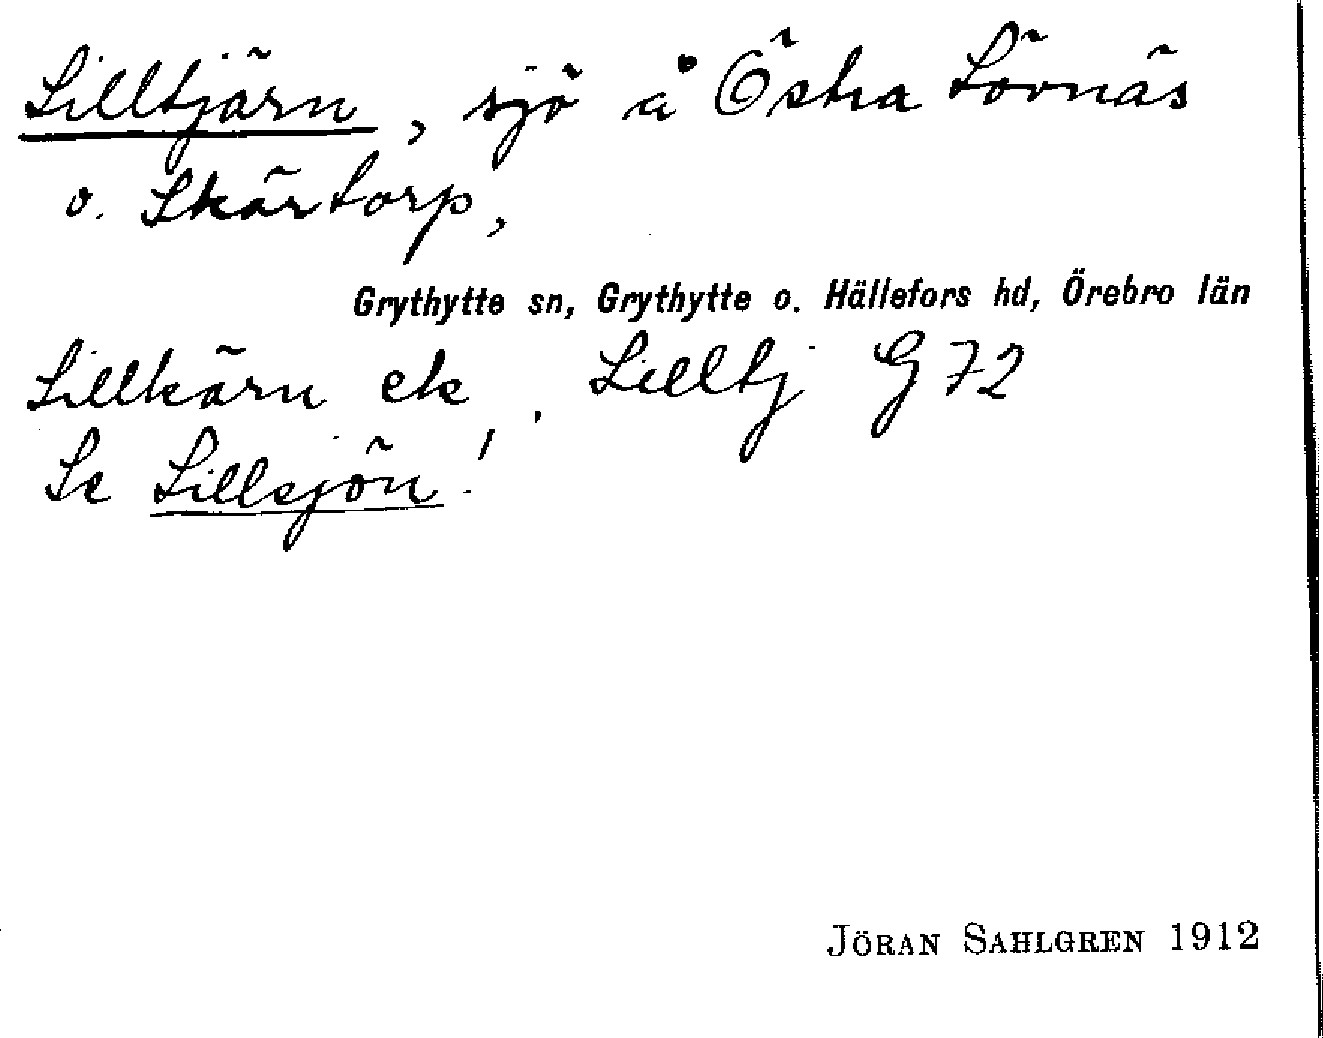 Lilltjärn, sjö å Östra Lövnäs
o. Skärtorp,
Grythytte sn, Grythytte o. Hällefors hd, Örebro län
Lillkärn ek, Lilltj G 72
Se Lillsjön!
JÖRAN SAHLGREN 1912